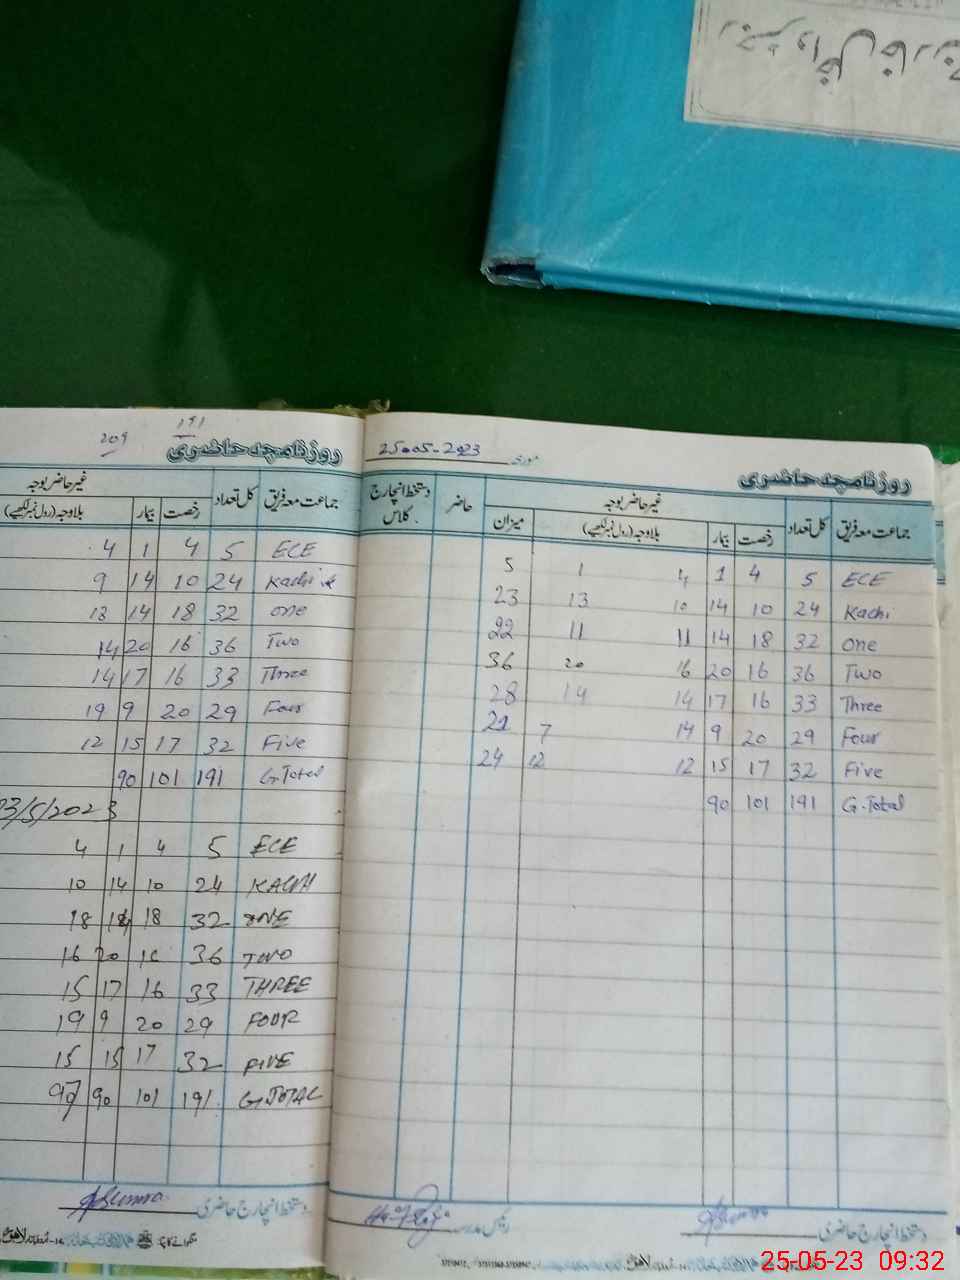 رجسٹر داخل خارج
209
191
روزنامچہ حاضری
جماعت معہ فریق کل تعداد غیر حاضر بوجہ
رخصت بیمار بلاوجہ (رول نمبر لکھیے)
ECE 5 4 1 4
Kachi 24 10 14 9
One 32 18 14 13
Two 36 16 20 14
Three 33 16 17 14
Four 29 20 9 19
Five 32 17 15 12
G.Total 191 101 90
23/5/2023
ECE 5 4 1 4
KACHI 24 10 14 10
ONE 32 18 14 18
TWO 36 16 20 16
THREE 33 16 17 15
FOUR 29 20 9 19
FIVE 32 17 15 15
G.TOTAL 191 101 90 97
دستخط انچارج حاضری
25-05-2023
مورخہ
روزنامچہ حاضری
جماعت معہ فریق کل تعداد غیر حاضر بوجہ حاضر دستخط انچارج کلاس
رخصت بیمار بلاوجہ (رول نمبر لکھیے) میزان
ECE 5 4 1 4 1 5
Kachi 24 10 14 10 13 23
One 32 18 14 11 11 22
Two 36 16 20 16 20 36
Three 33 16 17 14 14 28
Four 29 20 9 14 7 21
Five 32 17 15 12 12 24
G.Total 191 101 90
دستخط انچارج حاضری
رئیس مدرسہ
25-05-23 09:32